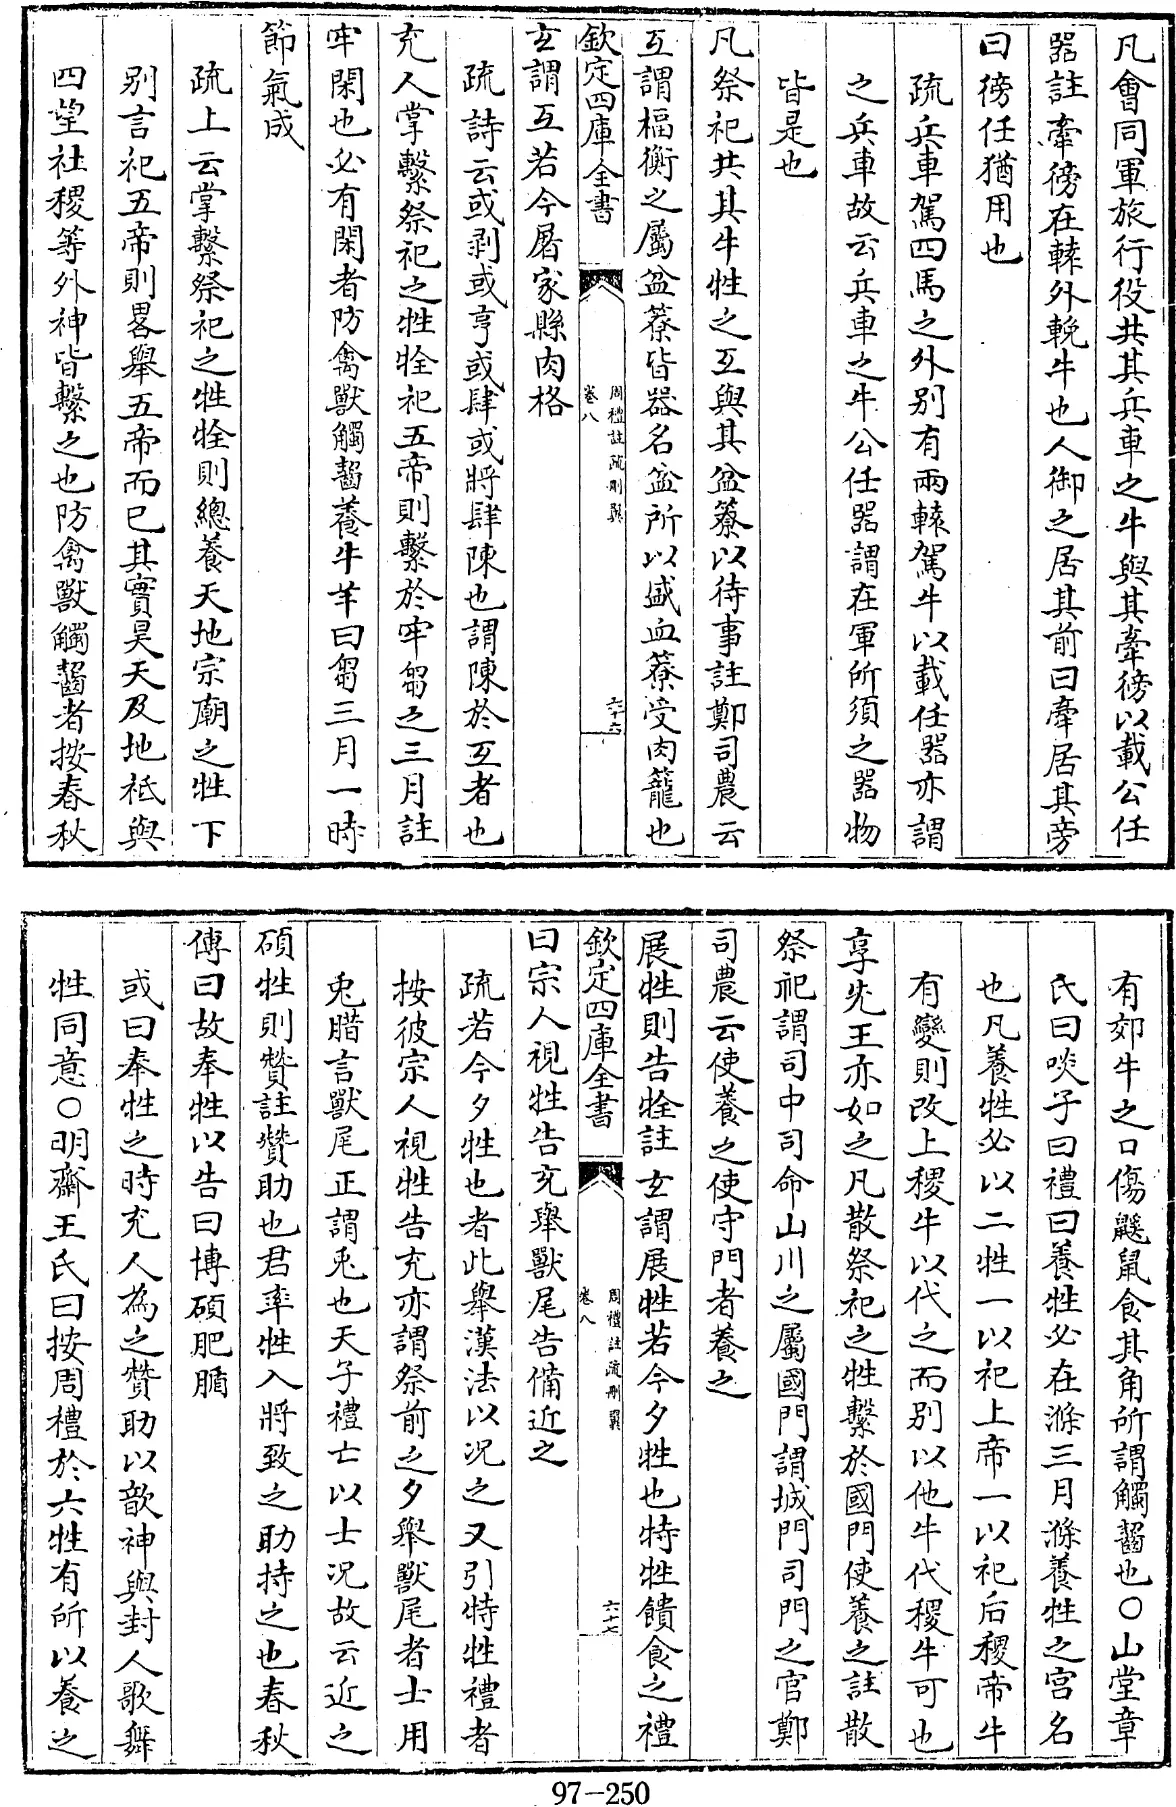 凡會同軍旅行役共其兵車之牛與其牽徬以載公任
器註牽徬在轅外輓牛也人御之居其前曰牽居其旁
曰徬任猶用也
疏兵車駕四馬之外别有兩轅駕牛以載任器亦謂
之兵車故云兵車之牛公任器謂在軍所須之器物
皆是也
凡祭祀共其牛牲之互與其盆簝以待事註鄭司農云
互謂楅衡之屬盆簝皆器名盆所以盛血簝受肉籠也
欽定四庫全書
周禮註疏刪翼
卷八
六十六
玄謂互若今屠家縣肉格
疏詩云或剥或亨或肆或將肆陳也謂陳於互者也
充人掌繫祭祀之牲牷祀五帝則繫於牢芻之三月註
牢閑也必有閑者防禽獸觸齧養牛羊曰芻三月一時
節氣成
疏上云掌繫祭祀之牲牷則總養天地宗廟之牲下
别言祀五帝則畧舉五帝而已其實昊天及地祗與
四望社稷等外神皆繫之也防禽獸觸齧者按春秋
有郊牛之口傷鼷鼠食其角所謂觸齧也○山堂章
氏曰啖子曰禮曰養牲必在滌三月滌養牲之宫名
也凡養牲必以二牲一以祀上帝一以祀后稷帝牛
有變則改上稷牛以代之而别以他牛代稷牛可也
享先王亦如之凡散祭祀之牲繫於國門使養之註散
祭祀謂司中司命山川之屬國門謂城門司門之官鄭
司農云使養之使守門者養之
展牲則告牷註玄謂展牲若今夕牲也特牲饋食之禮
欽定四庫全書
周禮註疏刪翼
卷八
六十七
曰宗人視牲告充舉獸尾告備近之
疏若今夕牲也者此舉漢法以况之又引特牲禮者
按彼宗人視牲告充亦謂祭前之夕舉獸尾者士用
兎腊言獸尾正謂兎也天子禮亡以士况故云近之
碩牲則贊註贊助也君牽牲入將致之助持之也春秋
傳曰故奉牲以告曰博碩肥腯
或曰奉牲之時充人為之贊助以歆神與封人歌舞
牲同意○明齋王氏曰按周禮於六牲有所以養之
97-250